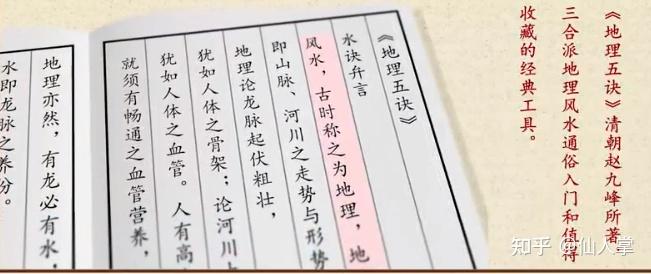 《地理五诀》清朝赵九峰所著
三合派地理风水通俗入门和值得
收藏的经典工具。
《地理五诀》
水诀弁言
风水，古时称之为地理，地
即山脉、河川之走势与形势
地理论龙脉起伏粗壮，
犹如人体之骨架；论河川
犹如人体之血管。人有高
就须有畅通之血管营养，
地理亦然，有龙必有水，
水即龙脉之养分。
知乎 @仙人掌